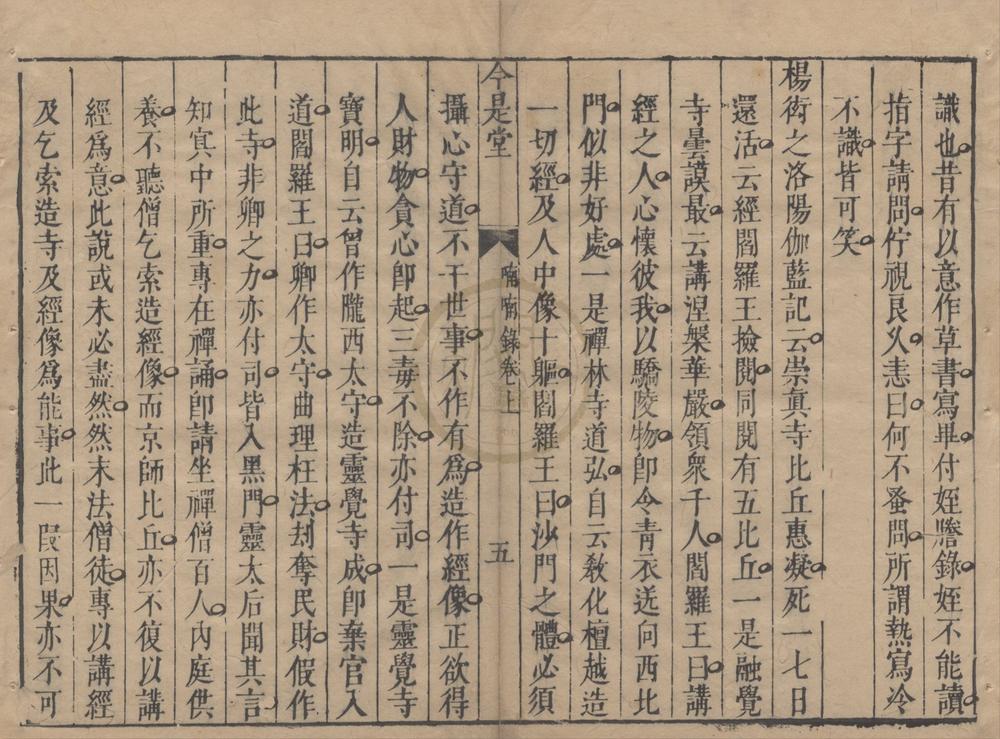 識也昔有以意作草書寫畢付姪謄錄姪不能讀
指字請問佇視良久恚曰何不蚤問所謂熱寫冷
不識皆可笑
楊衒之洛陽伽藍記云崇真寺比丘惠凝死一七日
還活云經閻羅王撿閱同閱有五比丘一是融覺
寺曇謨最云講涅槃華嚴領衆千人閻羅王曰講
經之人心懷彼我以驕陵物卽令青衣送向西北
門似非好處一是禪林寺道弘自云敎化檀越造
一切經及人中像十軀閻羅王曰沙門之體必須
今是堂
喃喃錄卷上
五
攝心守道不干世事不作有爲造作經像正欲得
人財物貪心卽起三毒不除亦付司一是靈覺寺
寶明自云曾作隴西太守造靈覺寺成卽棄官入
道閻羅王曰卿作太守曲理枉法刦奪民財假作
此寺非卿之力亦付司皆入黑門靈太后聞其言
知冥中所重專在禪誦卽請坐禪僧百人內庭供
養不聽僧乞索造經像而京師比丘亦不復以講
經爲意此說或未必盡然然末法僧徒專以講經
及乞索造寺及經像爲能事此一段因果亦不可